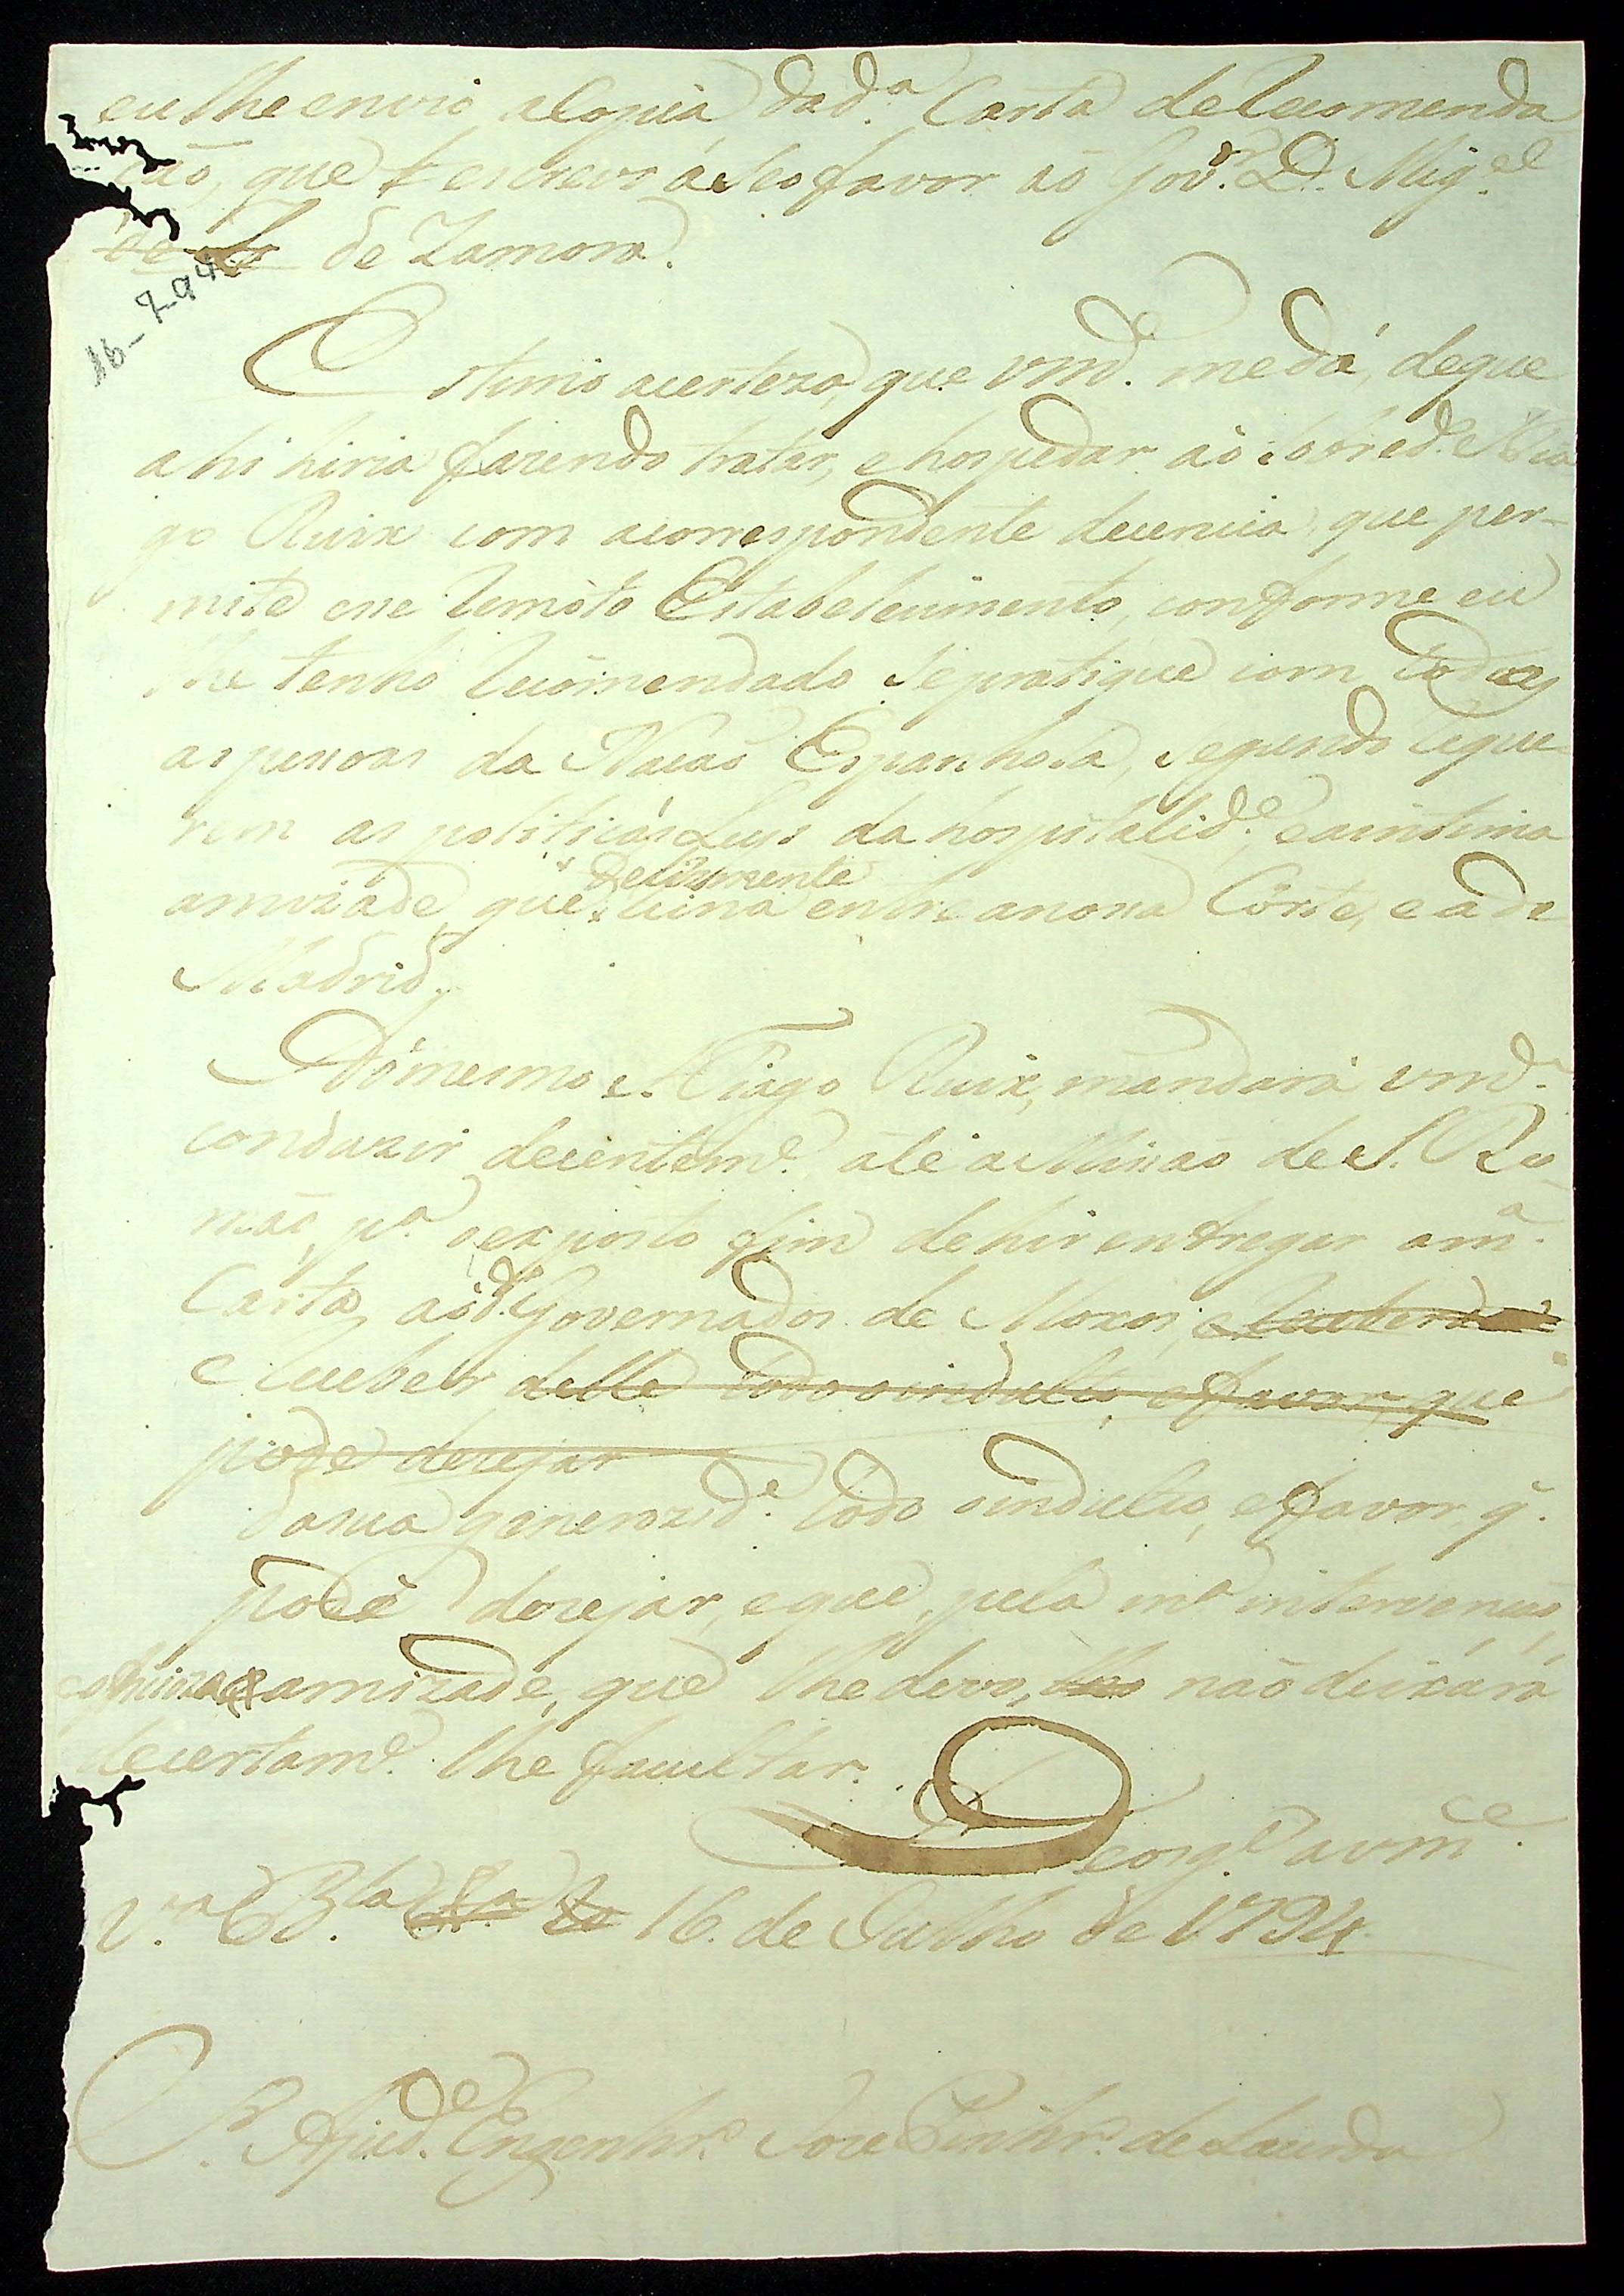 eu lhe envio a Copia da d.ª Carta de Recomenda
ção, que escrevo á Seo favor aó Gov.ºr D. Mig.el
de Zamora.
16-7-94
Estimo a certeza, que vm.d me dá, de que
ahi hiria fazendo tratar, e hospedar aó sobred.e Tia
go Ruix com a correspondente decencia, que per-
mite esse Remóto Estabelecimento, conforme eu
lhe tenho Recomendado Se pratique com todas
as pessoas da Nação Espanhola, Segundo Reque
rem as politicas Leys da hospitalid.e, e a intima
amizade, que felizmente Reina entre a nossa Córte, e a de
Madrid.
Aó mesmo Tiago Ruix, mandará vm.d
conduzir decentem.e até a Missão de S. Ra
mão, p.ª o exposto fim de hir entregar a m.ª
Carta aó d.º Governador de Moxos, e Receberá
e Receber delle todo o indulto, e favor, que
pode dezejar
da sua generozid.e todo o indulto, e favor, q.
póde dezejar, e que, pela m.ª intervenção,
e fineza e amizade, que lhe devo, não deixará
de certam.e lhe facultar.
Deos g.e a vm.ce
V.ª B.la 16. de Julho de 1794
S.r Ajud.e Engenhr.º Joze Pinhr.º de Lacerda